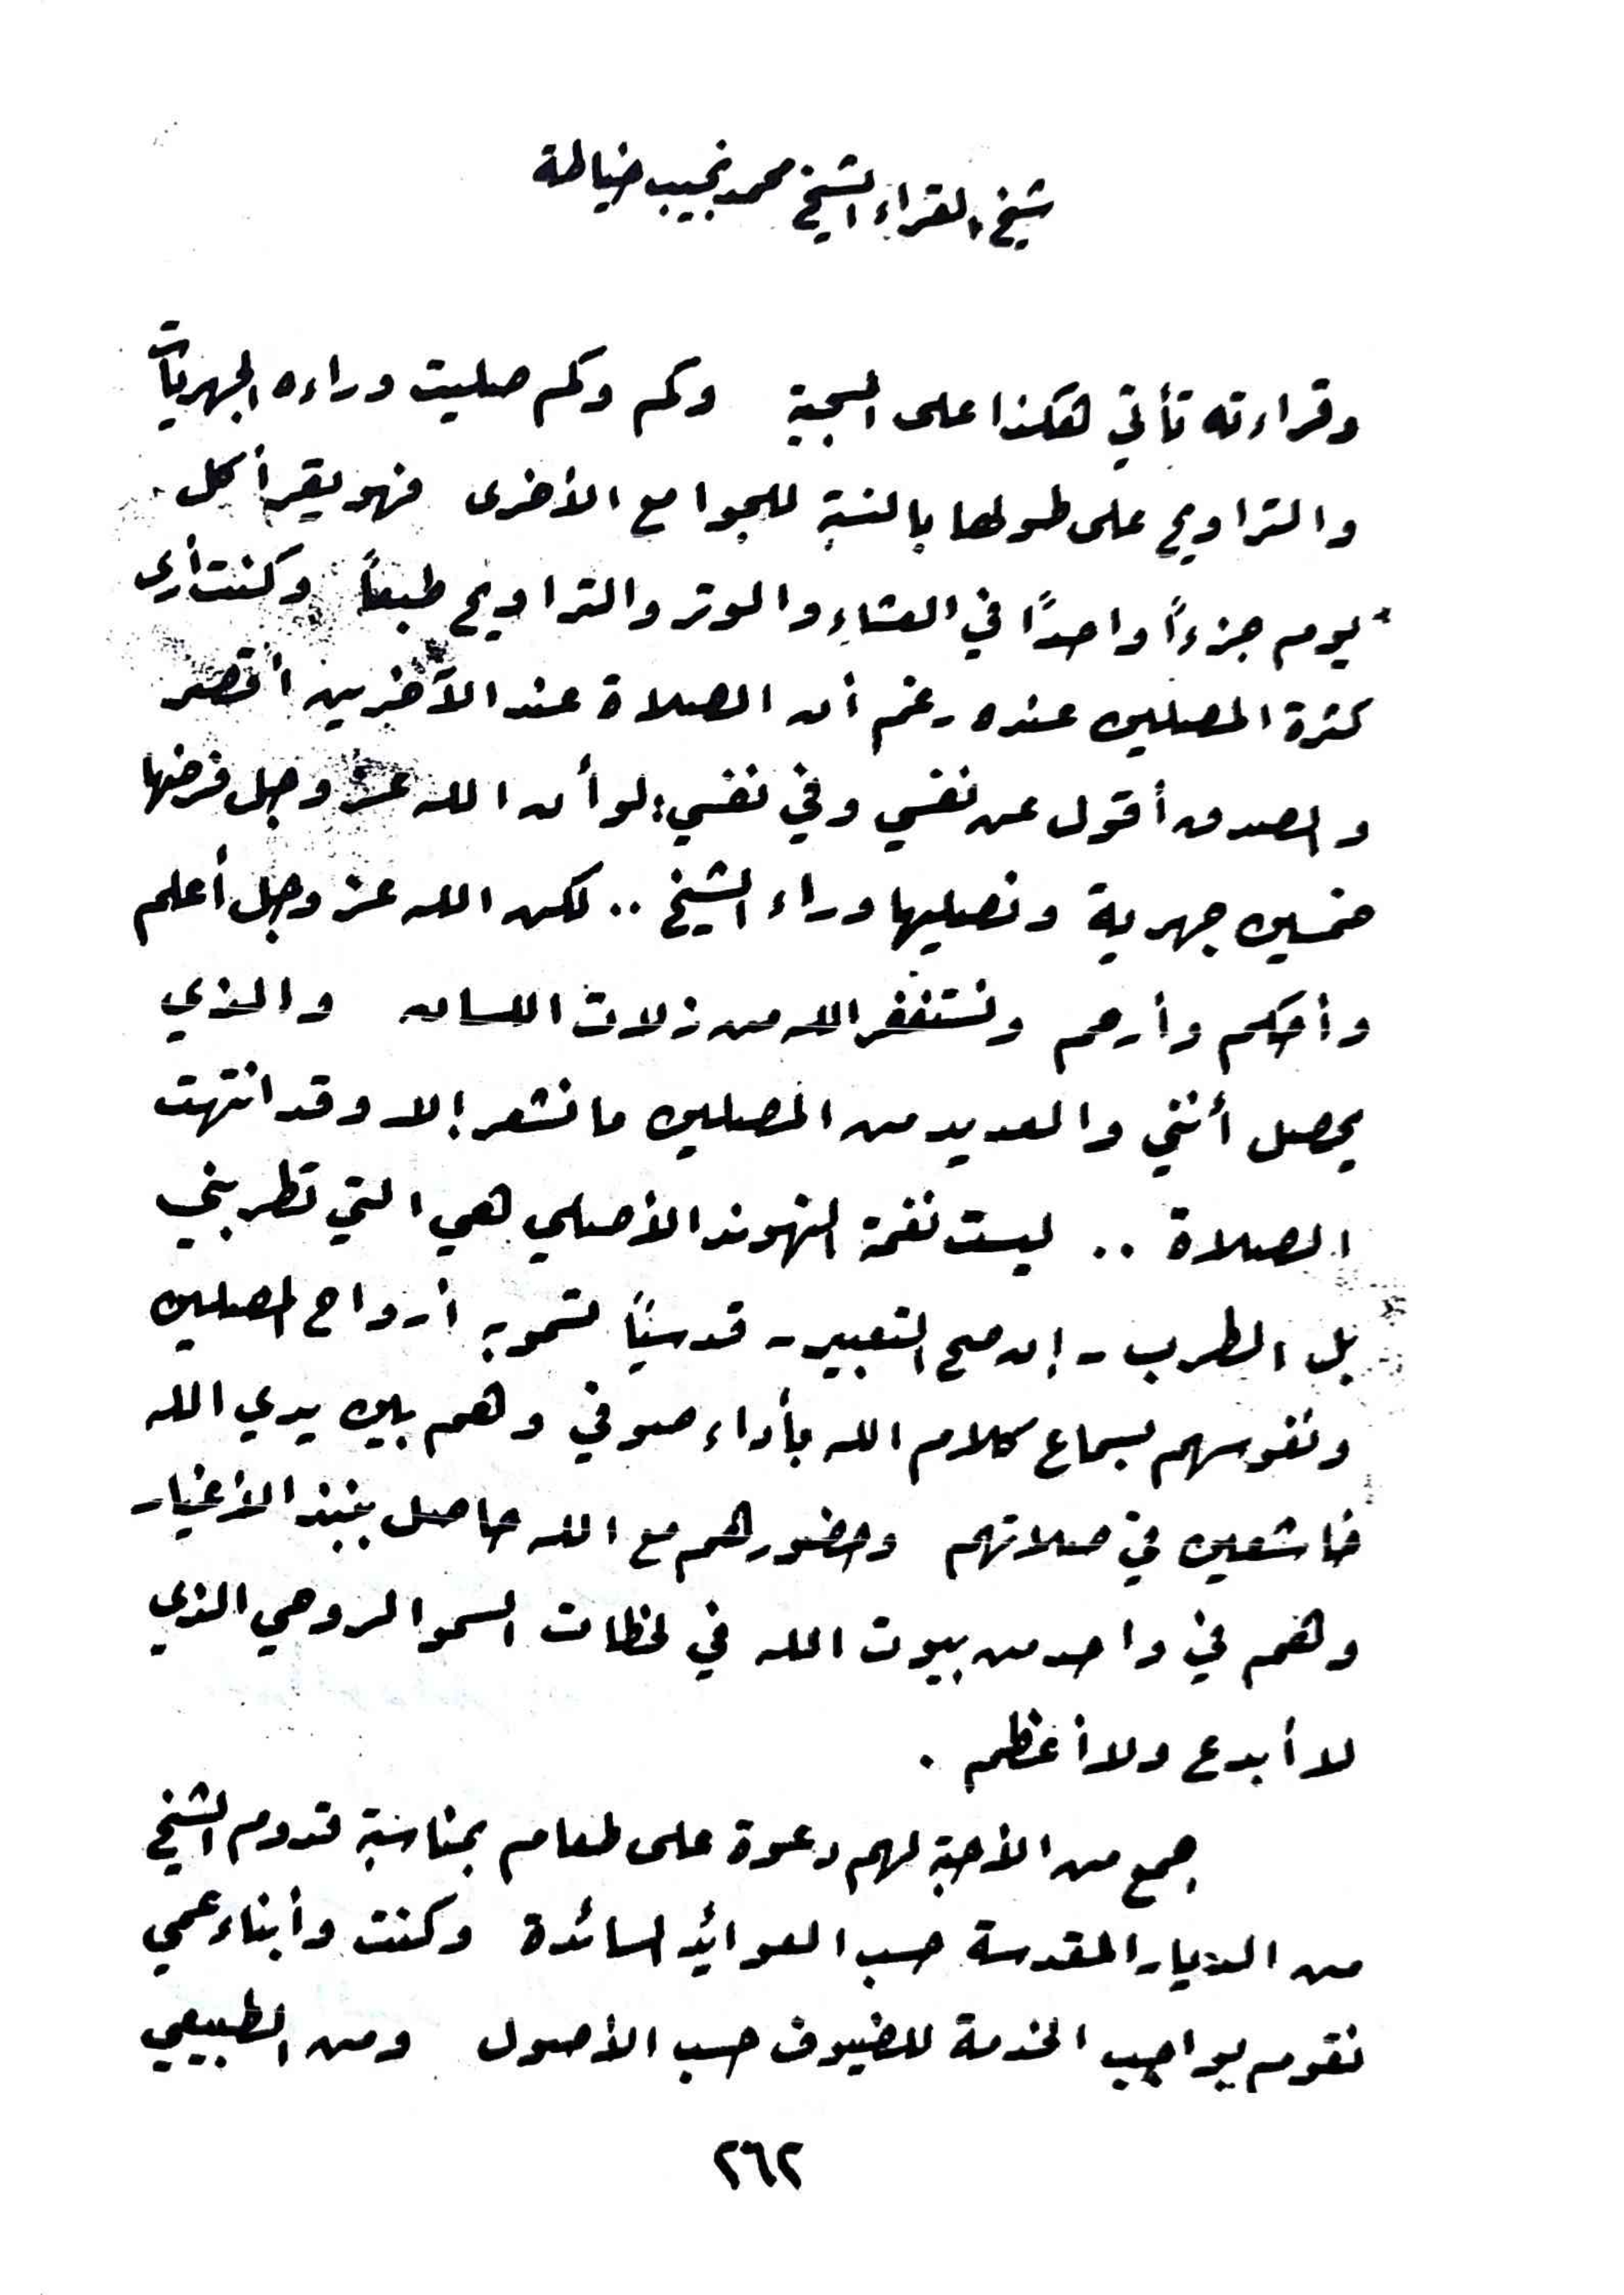 شيخ القراء الشيخ محمد نجيب خياطة
وقراءته تأتي هكذا على السجية وكم وكم صليت وراءه الجهريات
والتراويح على طولها بالنسبة للجوامع الأخرى فهو يقرأ كل
يوم جزءاً واحداً في العشاء والوتر والتراويح طبعاً وكنت أرى
كثرة المصلين عنده رغم أن الصلاة عند الآخرين أقصر
والصدق أقول عن نفسي وفي نفسي: لو أن الله عز وجل فرضها
خمسين جهرية ونصليها وراء الشيخ .. لكن الله عز وجل أعلم
وأحكم وأرحم ونستغفر الله من زلات اللسان والذي
يحصل أنني والعديد من المصلين ما نشعر إلا وقد انتهت
الصلاة .. ليست نغمة النهوند الأصلي هي التي تطربني
بل الطرب - إن صح التعبير - قدسياً تسمو به أرواح المصلين
ونفوسهم بسماع كلام الله بأداء صوفي وهم بين يدي الله
خاشعين في صلاتهم وحضورهم مع الله حاصل بنبذ الأغيار
وهم في واحد من بيوت الله في لحظات السمو الروحي الذي
لا أبدع ولا أعظم .
جمع من الأحبة لهم دعوة على طعام بمناسبة قدوم الشيخ
من الديار المقدسة حسب العوائد السائدة وكنت وأبناء عمي
نقوم بواجب الخدمة للضيوف حسب الأصول ومن الطبيعي
٢٦٢